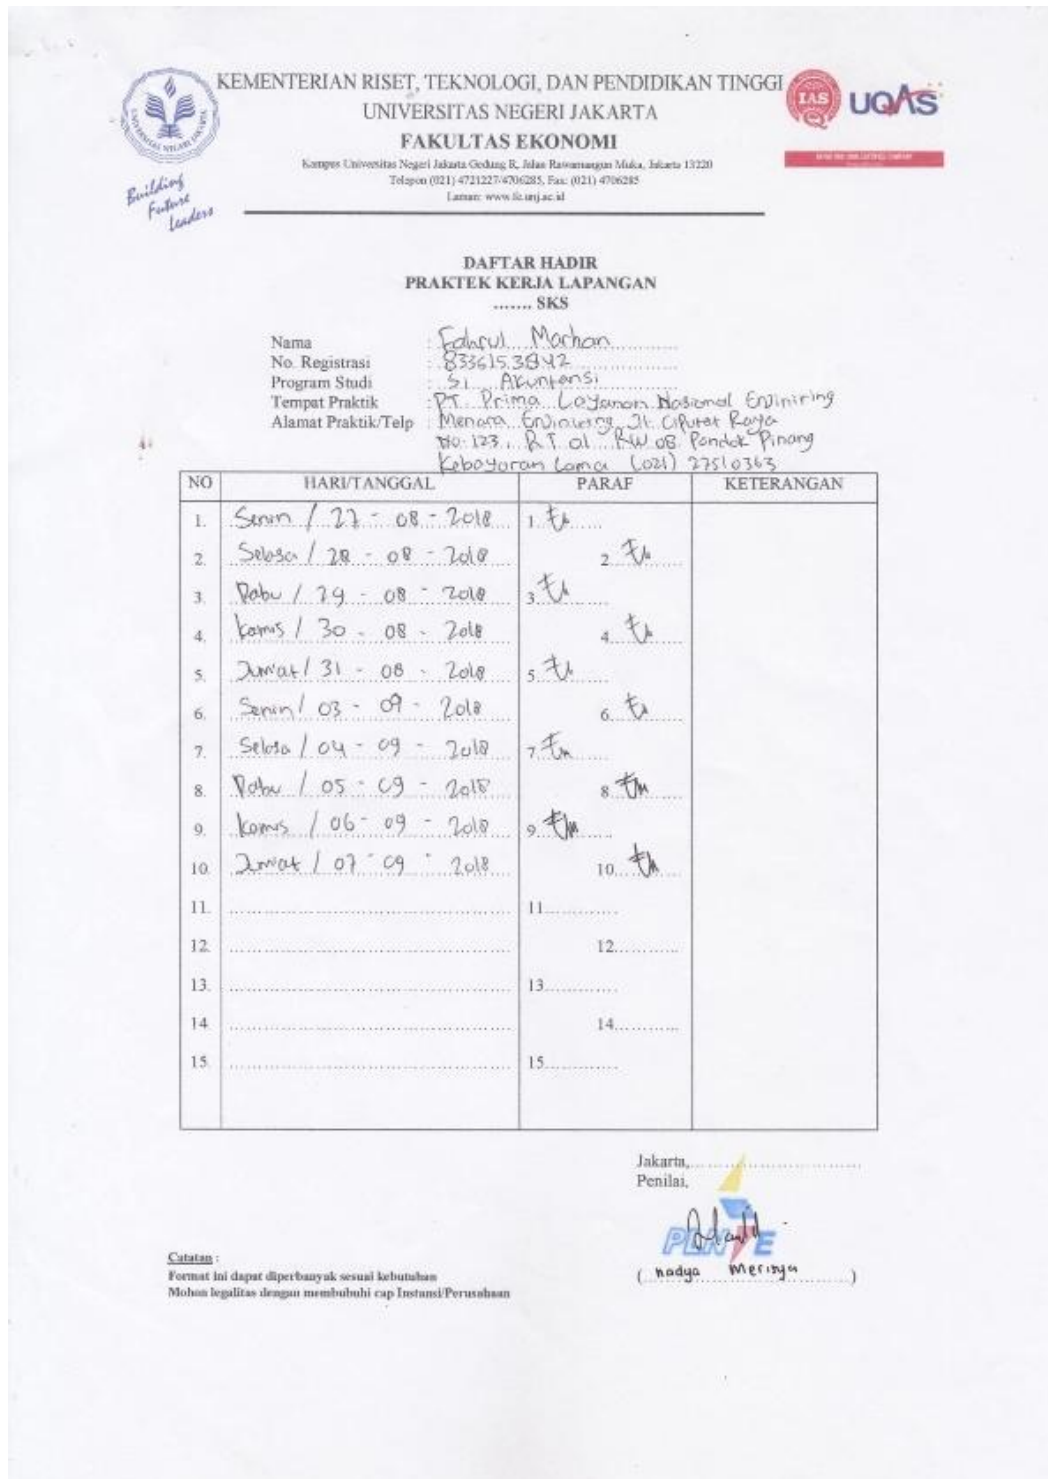 KEMENTERIAN RISET, TEKNOLOGI, DAN PENDIDIKAN TINGGI
UNIVERSITAS NEGERI JAKARTA
FAKULTAS EKONOMI
Kampus Universitas Negeri Jakarta Gedung R, Jalan Rawamangun Muka, Jakarta 13220
Telepon (021) 4721227/4706285, Fax: (021) 4706285
Laman: www.fe.unj.ac.id
UNIVERSITAS NEGERI JAKARTA
Building
Future
Leaders
IAS
UQAS
DAFTAR HADIR
PRAKTEK KERJA LAPANGAN
....... SKS
Nama : Fahrul Marhan
No. Registrasi : 8336153842
Program Studi : S1 Akuntansi
Tempat Praktik : PT. Prima Layanan Nasional Enjiniring
Alamat Praktik/Telp : Menara Enjiniring Jl. Ciputat Raya
No. 123, RT 01 RW 08 Pondok Pinang
Kebayoran Lama (021) 27510363
NO HARI/TANGGAL PARAF KETERANGAN
1. Senin / 27 - 08 - 2018 1.
2. Selasa / 28 - 08 - 2018 2.
3. Rabu / 29 - 08 - 2018 3.
4. Kamis / 30 - 08 - 2018 4.
5. Jum'at / 31 - 08 - 2018 5.
6. Senin / 03 - 09 - 2018 6.
7. Selasa / 04 - 09 - 2018 7.
8. Rabu / 05 - 09 - 2018 8.
9. Kamis / 06 - 09 - 2018 9.
10. Jum'at / 07 - 09 - 2018 10.
11. 11.
12. 12.
13. 13.
14. 14.
15. 15.
Jakarta,
Penilai,
PLN E
( Nadya Merisya )
Catatan :
Format ini dapat diperbanyak sesuai kebutuhan
Mohon legalitas dengan membubuhi cap Instansi/Perusahaan